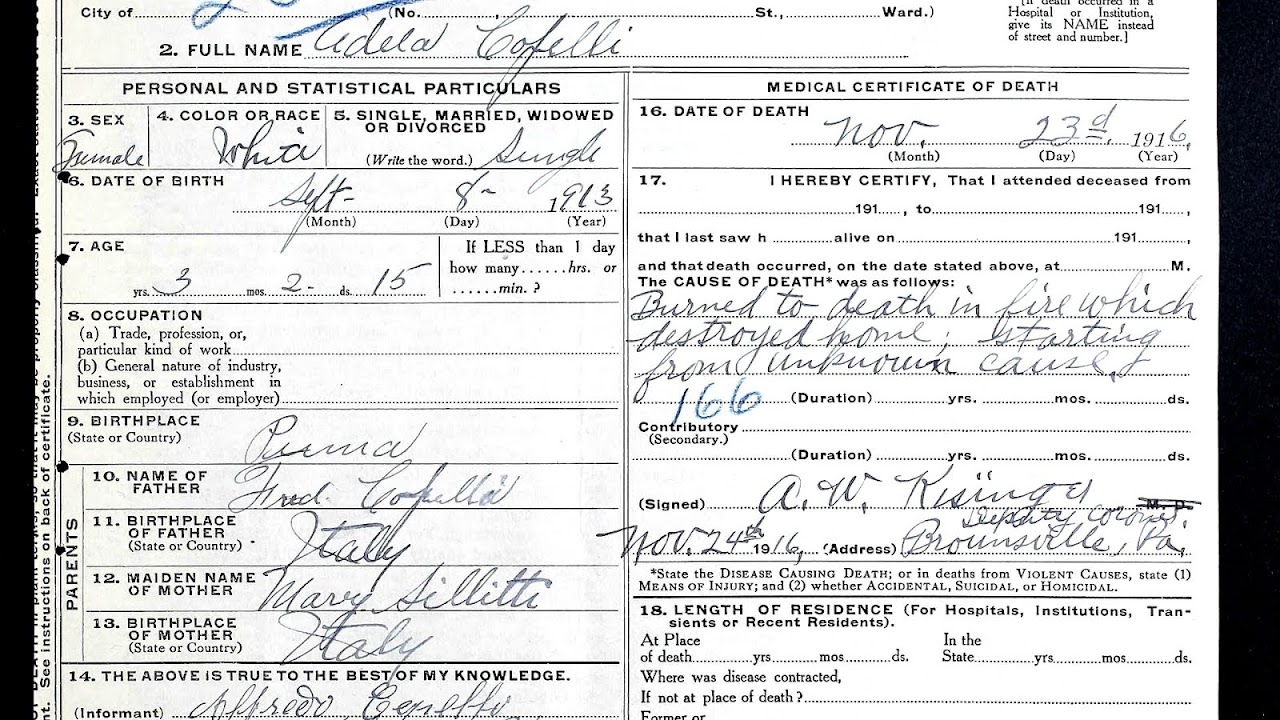 City of (No. , St., Ward.)
[If death occurred in a
Hospital or Institution,
give its NAME instead
of street and number.]
2. FULL NAME Adela Cofelli
PERSONAL AND STATISTICAL PARTICULARS
3. SEX
Female
4. COLOR OR RACE
White
5. SINGLE, MARRIED, WIDOWED
OR DIVORCED
(Write the word.) Single
6. DATE OF BIRTH
Sept- 8- 1913
(Month) (Day) (Year)
7. AGE
yrs. 3 mos. 2- ds. 15
If LESS than 1 day
how many......hrs. or
......min. ?
8. OCCUPATION
(a) Trade, profession, or,
particular kind of work
(b) General nature of industry,
business, or establishment in
which employed (or employer)
9. BIRTHPLACE
(State or Country)
Penna
PARENTS
10. NAME OF
FATHER
Fred. Cofelli
11. BIRTHPLACE
OF FATHER
(State or Country)
Italy
12. MAIDEN NAME
OF MOTHER
Mary Sillitti
13. BIRTHPLACE
OF MOTHER
(State or Country)
Italy
14. THE ABOVE IS TRUE TO THE BEST OF MY KNOWLEDGE.
(Informant) Alfredo
MEDICAL CERTIFICATE OF DEATH
16. DATE OF DEATH
Nov. 23d. 1916,
(Month) (Day) (Year)
17. I HEREBY CERTIFY, That I attended deceased from
191 , to 191 ,
that I last saw h alive on 191 ,
and that death occurred, on the date stated above, at M.
The CAUSE OF DEATH* was as follows:
Burned to death in fire which
destroyed home; starting
from unknown cause.
166
(Duration) yrs. mos. ds.
Contributory
(Secondary.)
(Duration) yrs. mos. ds.
(Signed) A. W. Kisinger M. D.
Deputy Coroner.
Nov. 24th 1916, (Address) Brownsville, Pa.
*State the DISEASE CAUSING DEATH; or in deaths from VIOLENT CAUSES, state (1)
MEANS OF INJURY; and (2) whether ACCIDENTAL, SUICIDAL, or HOMICIDAL.
18. LENGTH OF RESIDENCE (For Hospitals, Institutions, Tran-
sients or Recent Residents).
At Place
of death yrs mos ds.
In the
State yrs mos ds.
Where was disease contracted,
If not at place of death ?
Former or
nt. See instructions on back of certificate.